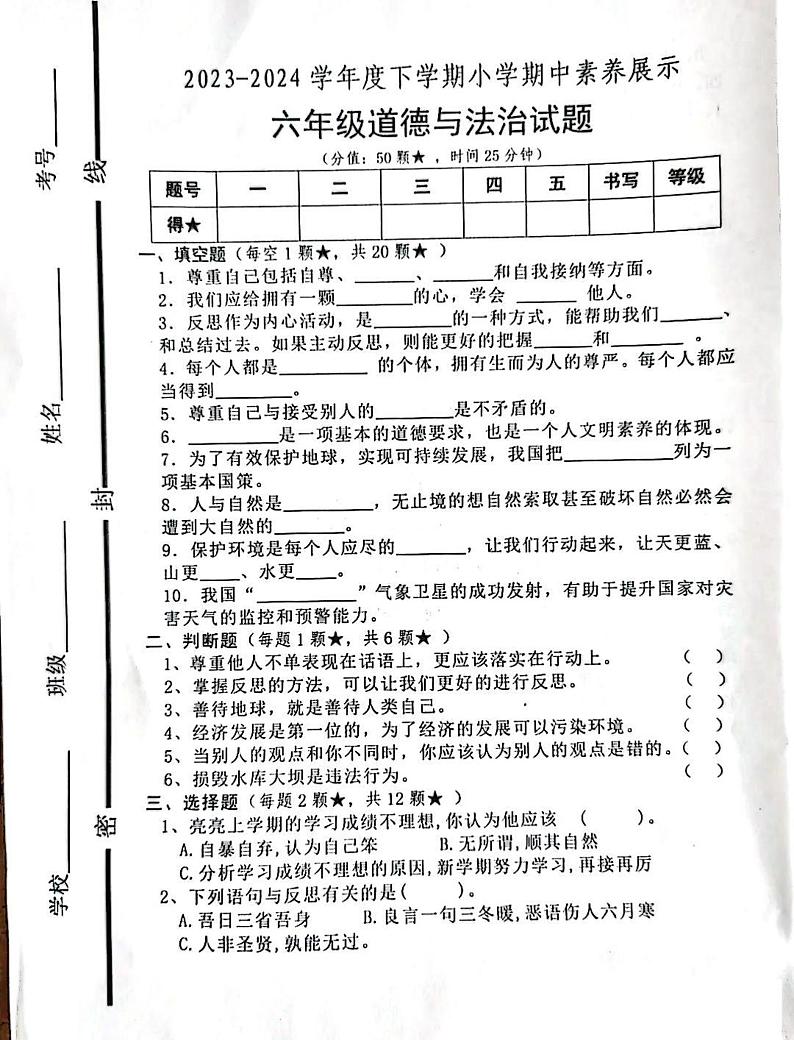 2023-2024 学年度下学期小学期中素养展示
六年级道德与法治试题
（分值：50 颗★ ，时间 25 分钟）
题号 一 二 三 四 五 书写 等级
得★
一、填空题（每空 1 颗★，共 20 颗★ ）
1．尊重自己包括自尊、_______、_______和自我接纳等方面。
2．我们应给拥有一颗________的心，学会 ______ 他人。
3．反思作为内心活动，是________的一种方式，能帮助我们______、
和总结过去。如果主动反思，则能更好的把握______和_______ 。
4．每个人都是_________ 的个体，拥有生而为人的尊严。每个人都应
当得到________。
5．尊重自己与接受别人的________是不矛盾的。
6．_________是一项基本的道德要求，也是一个人文明素养的体现。
7．为了有效保护地球，实现可持续发展，我国把___________列为一
项基本国策。
8．人与自然是_________，无止境的想自然索取甚至破坏自然必然会
遭到大自然的_______。
9．保护环境是每个人应尽的_______，让我们行动起来，让天更蓝、
山更____、水更____。
10．我国“__________”气象卫星的成功发射，有助于提升国家对灾
害天气的监控和预警能力。
二、判断题（每题 1 颗★，共 6 颗★ ）
1、尊重他人不单表现在话语上，更应该落实在行动上。 （ ）
2、掌握反思的方法，可以让我们更好的进行反思。 （ ）
3、善待地球，就是善待人类自己。 （ ）
4、经济发展是第一位的，为了经济的发展可以污染环境。 （ ）
5、当别人的观点和你不同时，你应该认为别人的观点是错的。（ ）
6、损毁水库大坝是违法行为。 （ ）
三、选择题（每题 2 颗★，共 12 颗★ ）
1、亮亮上学期的学习成绩不理想,你认为他应该 （ ）。
A.自暴自弃,认为自己笨 B.无所谓,顺其自然
C.分析学习成绩不理想的原因,新学期努力学习,再接再厉
2、下列语句与反思有关的是( )。
A.吾日三省吾身 B.良言一句三冬暖,恶语伤人六月寒
C.人非圣贤,孰能无过。
学校________ 班级________ 姓名________ 考号________
密 封 线